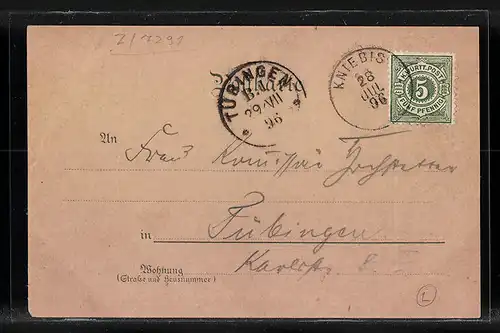 Z/1291
Postkarte
TÜBINGEN
29 VII
96
KNIEBIS
28
JUL
96
K. WÜRTT. POST
5
FÜNF PFENNIG
An
Frau
in Tübingen
Wohnung
(Straße und Hausnummer)
Karlstr.
L